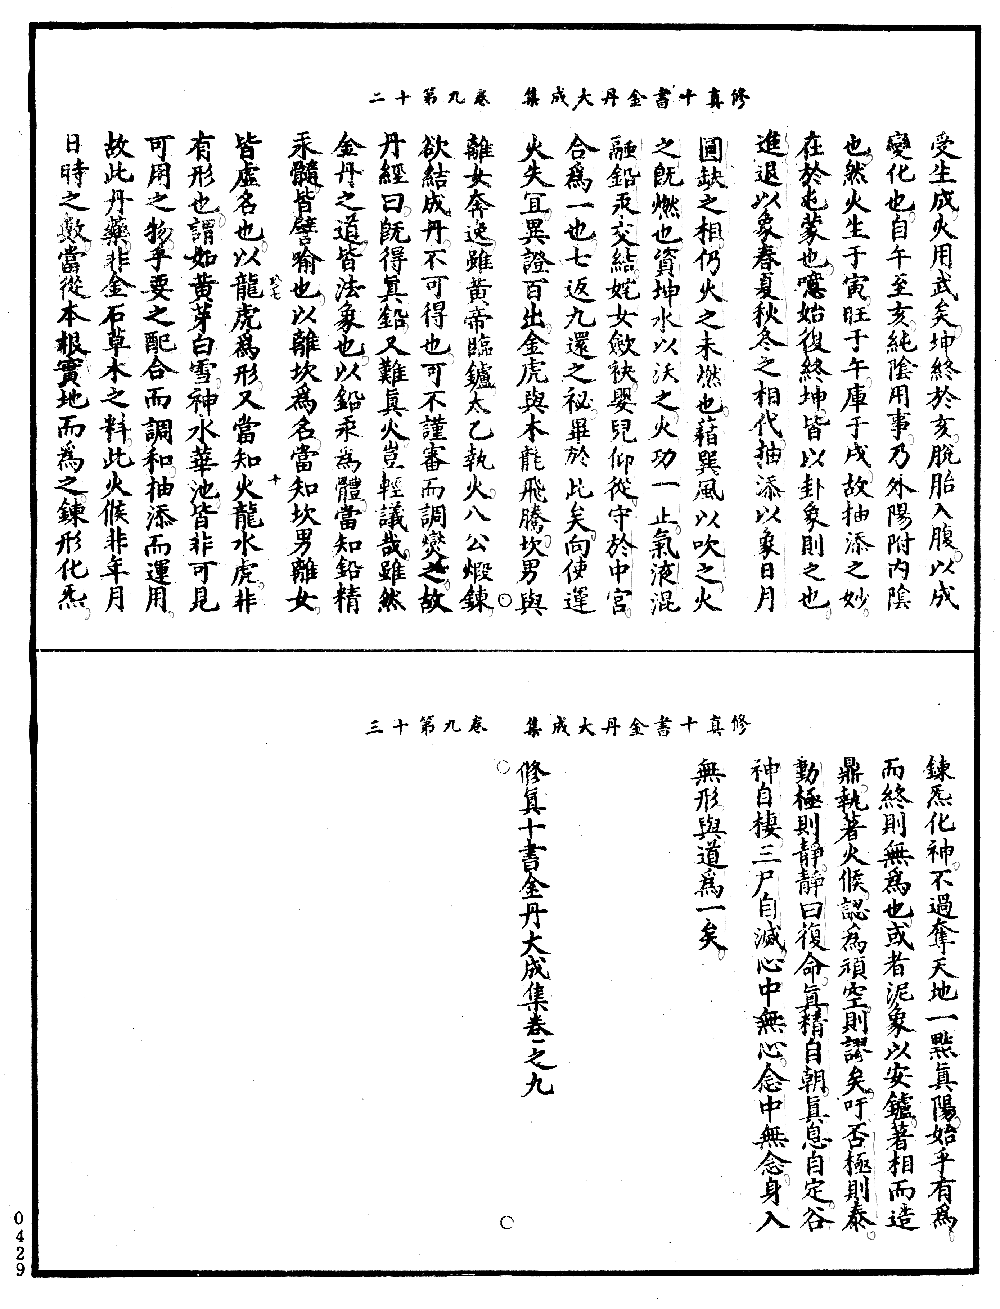 修真十書金丹大成集　卷九第十二
受生成火用武矣坤終於亥脫胎入腹以成
變化也自午至亥純陰用事乃外陽附內陰
也然火生于寅旺于午庫于戌故抽添之妙
在於屯蒙也噫始復終坤皆以卦象則之也
進退以象春夏秋冬之相代抽添以象日月
圓缺之相仍火之未燃也藉巽風以吹之火
之旣燃也資坤水以沃之火功一止氣液混
融鉛汞交結姹女斂袂嬰兒仰從守於中宮
合爲一也七返九還之祕畢於此矣向使運
火失宜異證百出金虎與木龍飛騰坎男與
離女奔逸雖黃帝臨鑪太乙執火八公煅鍊
欲結成丹不可得也可不謹審而調燮之故
丹經曰旣得眞鉛又難眞火豈輕議哉雖然
金丹之道皆法象也以鉛汞爲體當知鉛精
汞髓皆譬喻也以離坎爲名當知坎男離女
皆虛名也以龍虎爲形又當知火龍水虎非
有形也謂如黃芽白雪神水華池皆非可見
可用之物乎要之配合而調和抽添而運用
故此丹藥非金石草木之料此火候非年月
日時之數當從本根實地而爲之鍊形化炁
修真十書金丹大成集　卷九第十三
鍊炁化神不過奪天地一點眞陽始乎有爲
而終則無爲也或者泥象以安鑪著相而造
鼎執著火候認爲頑空則謬矣吁否極則泰
動極則靜靜曰復命眞精自朝眞息自定谷
神自棲三尸自滅心中無心念中無念身入
無形與道爲一矣
修眞十書金丹大成集卷之九
0429